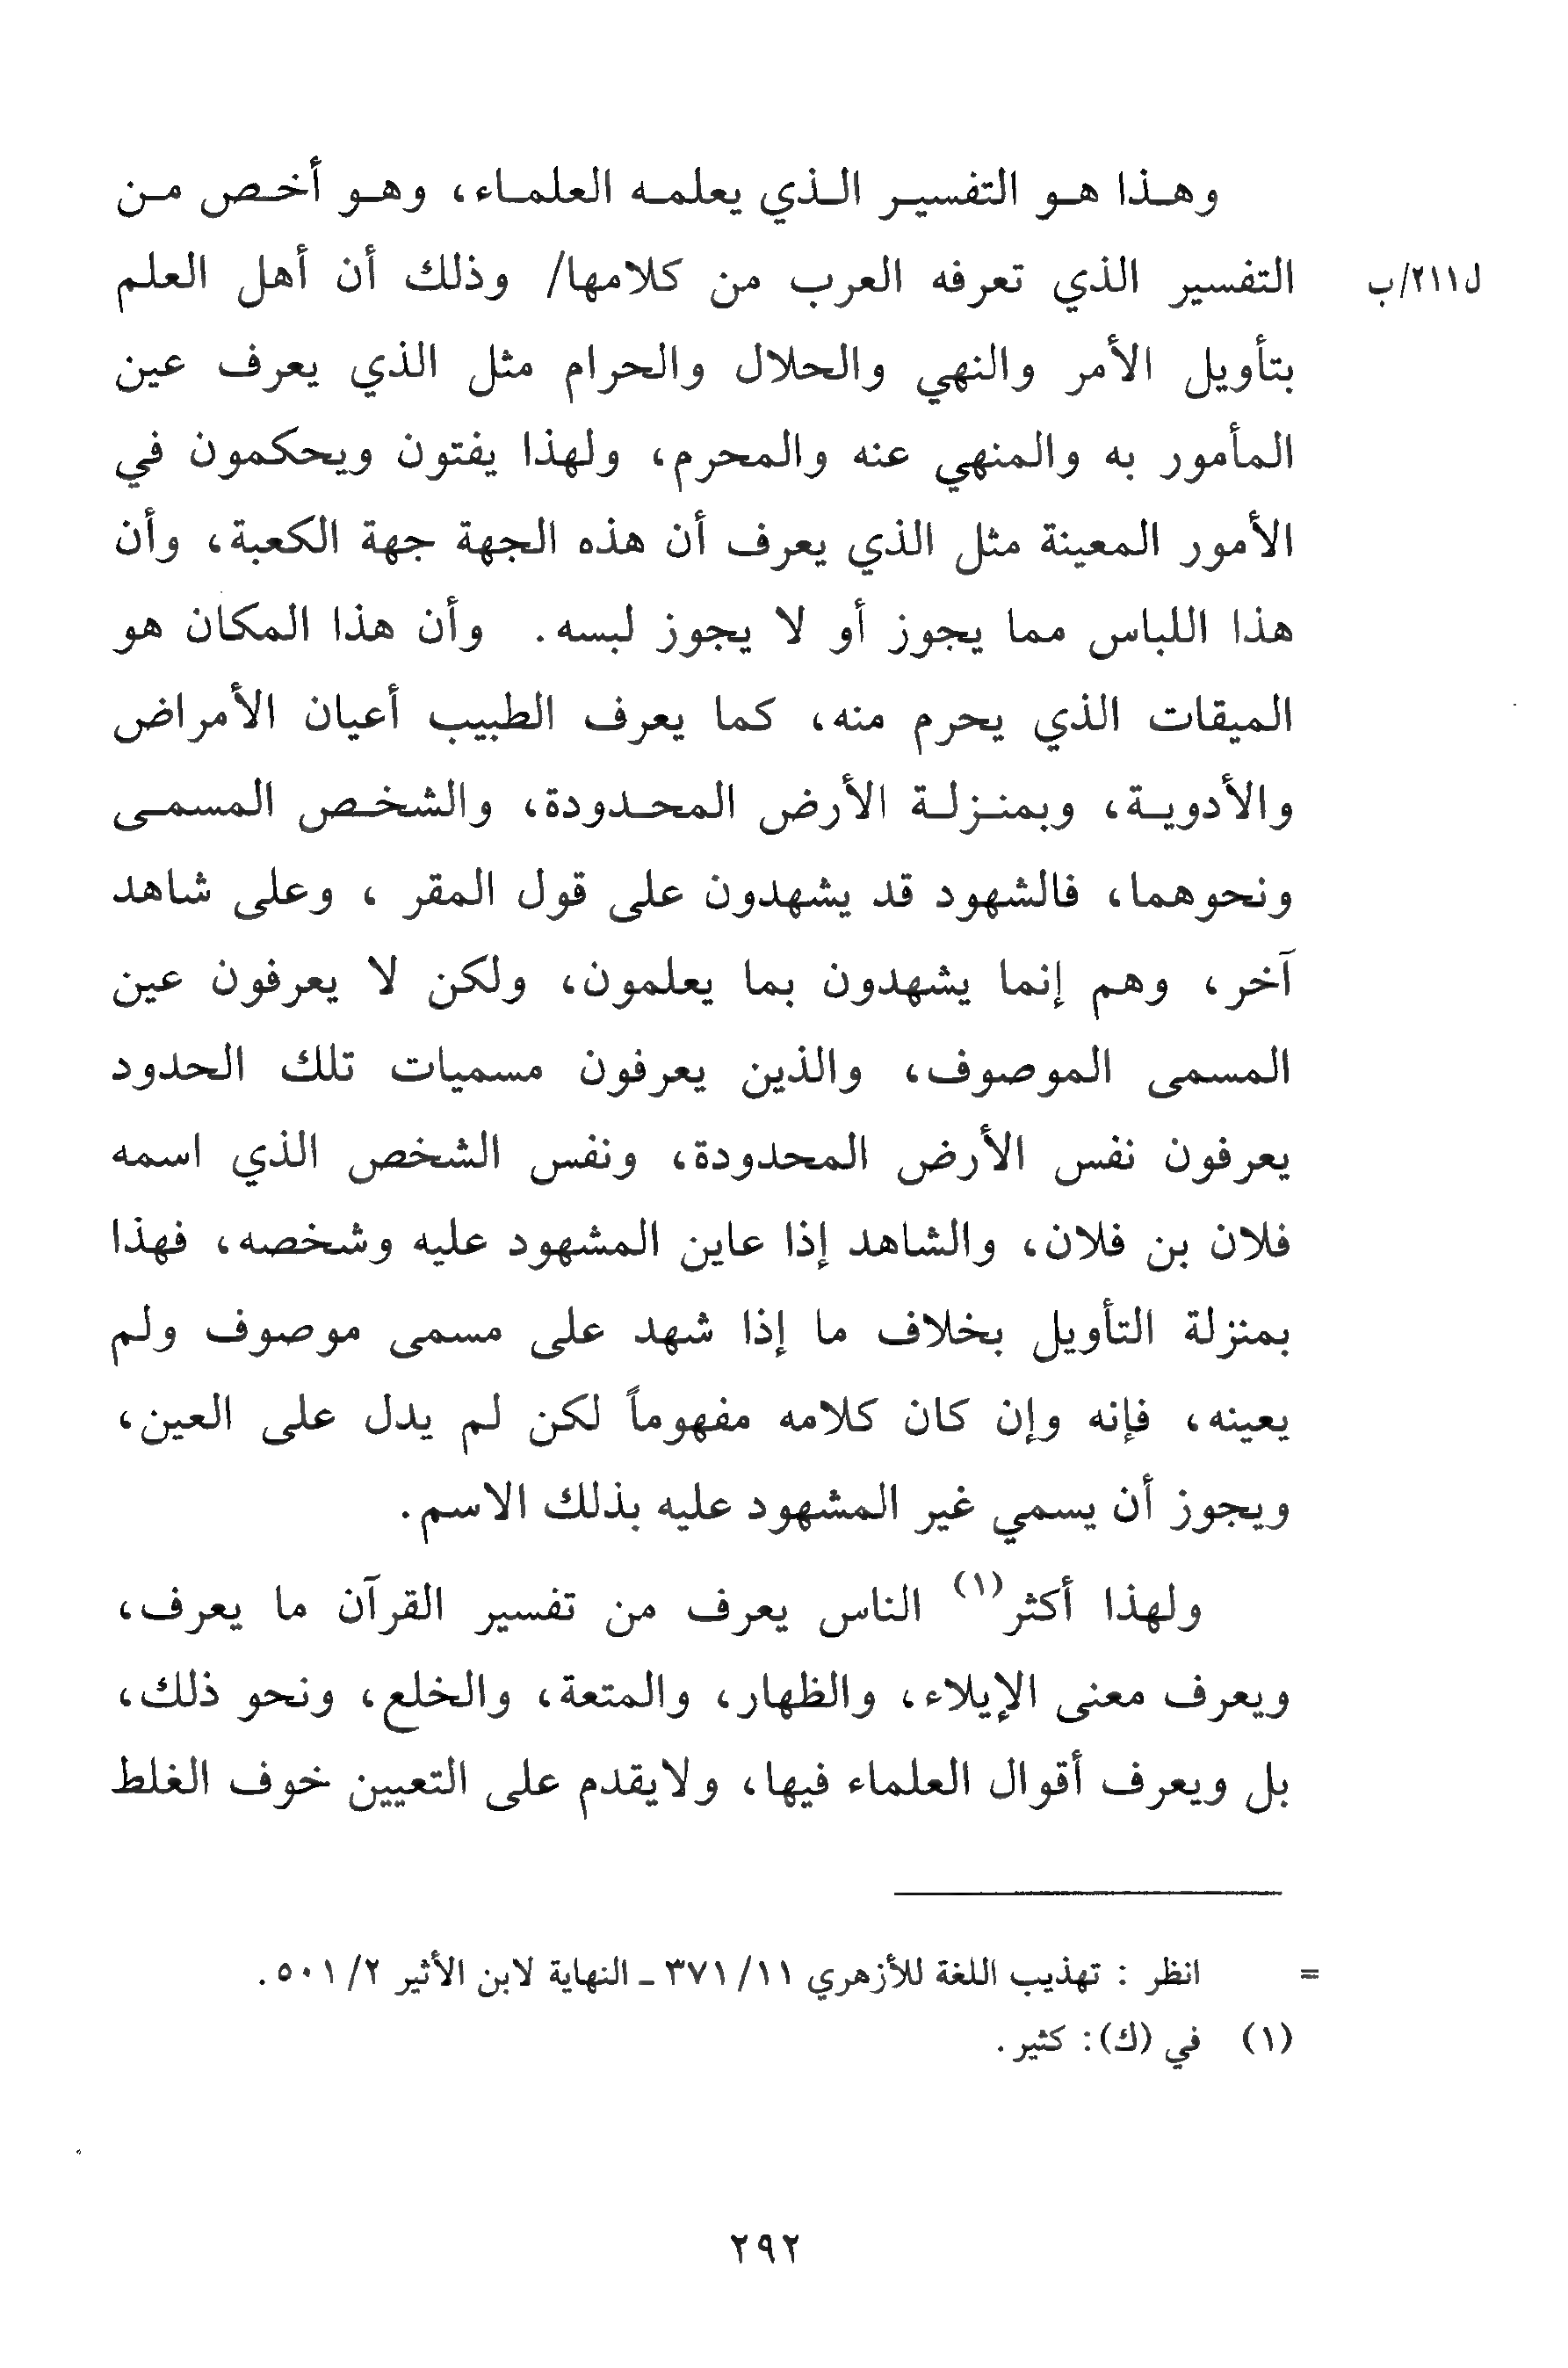 وهـذا هـو التفسيـر الـذي يعلمـه العلمـاء، وهـو أخـص مـن
ل٢١١/ب التفسير الذي تعرفه العرب من كلامها/ وذلك أن أهل العلم
بتأويل الأمر والنهي والحلال والحرام مثل الذي يعرف عين
المأمور به والمنهي عنه والمحرم، ولهذا يفتون ويحكمون في
الأمور المعينة مثل الذي يعرف أن هذه الجهة جهة الكعبة، وأن
هذا اللباس مما يجوز أو لا يجوز لبسه. وأن هذا المكان هو
الميقات الذي يحرم منه، كما يعرف الطبيب أعيان الأمراض
والأدويـة، وبمنـزلـة الأرض المحـدودة، والشخـص المسمـى
ونحوهما، فالشهود قد يشهدون على قول المقر ، وعلى شاهد
آخر، وهم إنما يشهدون بما يعلمون، ولكن لا يعرفون عين
المسمى الموصوف، والذين يعرفون مسميات تلك الحدود
يعرفون نفس الأرض المحدودة، ونفس الشخص الذي اسمه
فلان بن فلان، والشاهد إذا عاين المشهود عليه وشخصه، فهذا
بمنزلة التأويل بخلاف ما إذا شهد على مسمى موصوف ولم
يعينه، فإنه وإن كان كلامه مفهوماً لكن لم يدل على العين،
ويجوز أن يسمي غير المشهود عليه بذلك الاسم.
ولهذا أكثر(١) الناس يعرف من تفسير القرآن ما يعرف،
ويعرف معنى الإيلاء، والظهار، والمتعة، والخلع، ونحو ذلك،
بل ويعرف أقوال العلماء فيها، ولايقدم على التعيين خوف الغلط
= انظر : تهذيب اللغة للأزهري ١١/ ٣٧١ ـ النهاية لابن الأثير ٢/ ٥٠١.
(١) في (ك): كثير.
٢٩٢